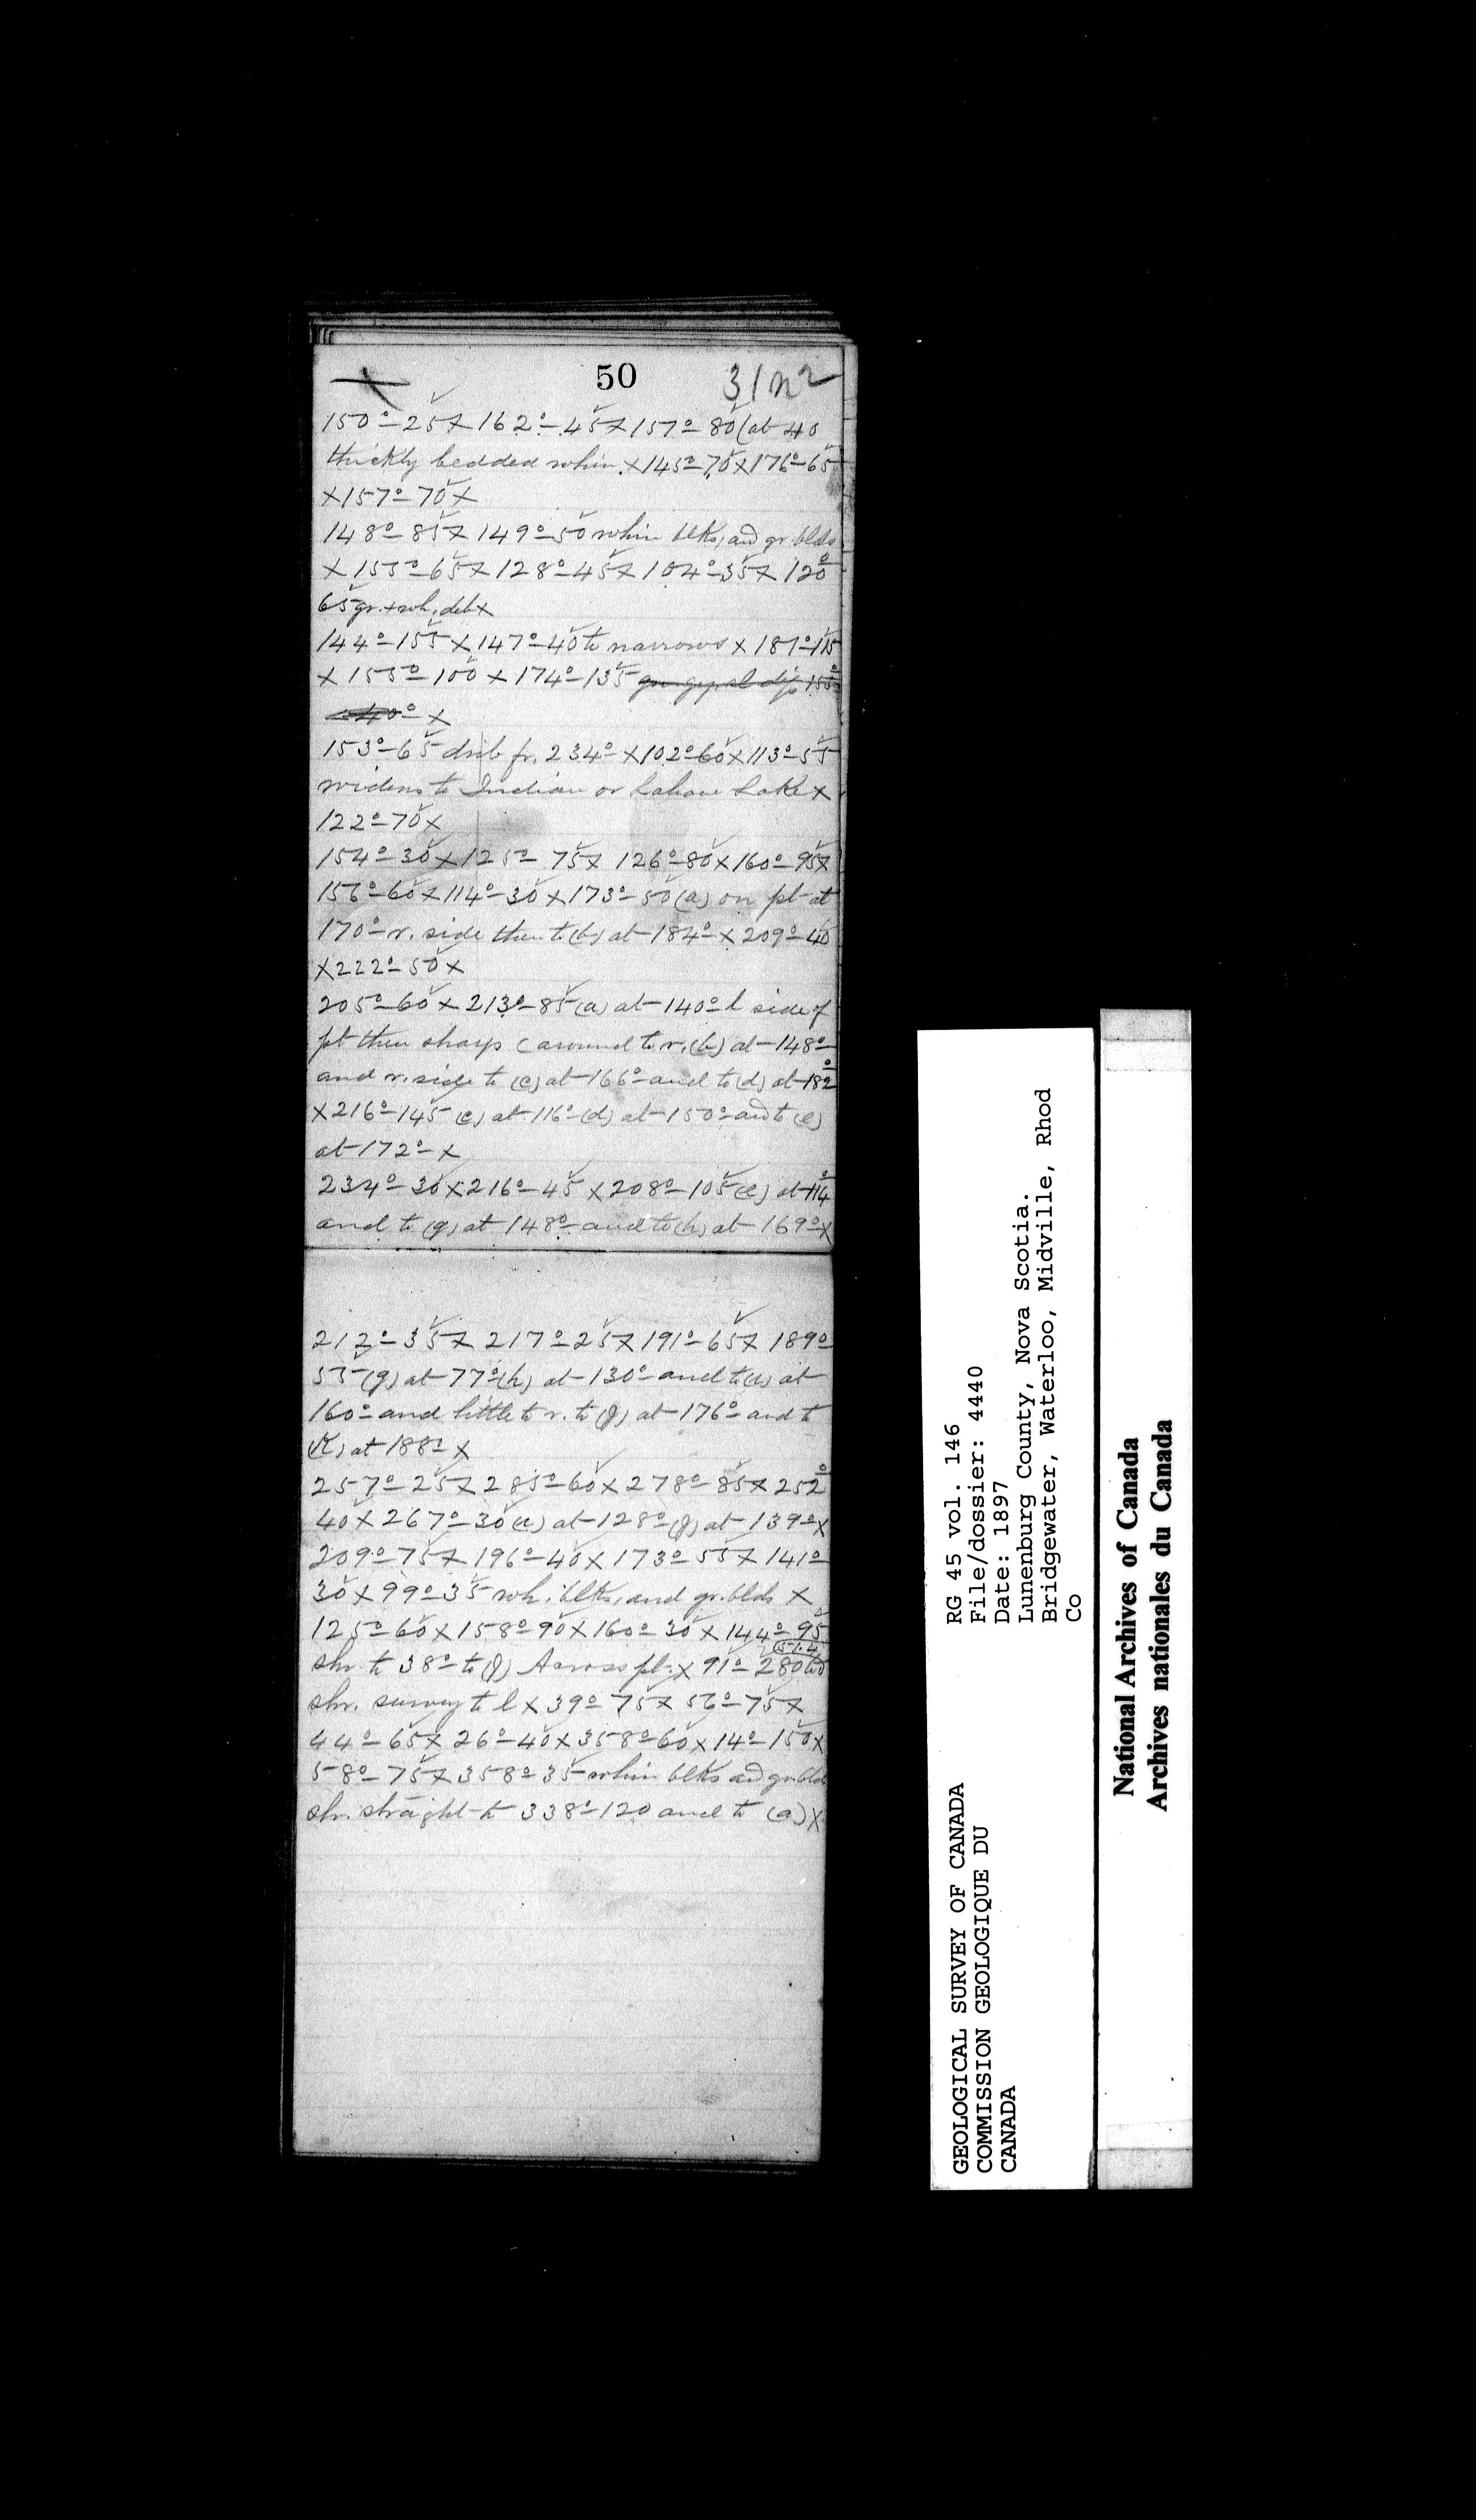 50 31n2
150°-25 x 162°-45 x 157°-80 (at 40
thickly bedded whin. x 145°-70 x 176°-65
x 157°-70 x
148°-85 x 149°-50 whin blks, and gr. blds
x 155°-65 x 128°-45 x 104°-35 x 120°
65 gr. + wh. deb x
144°-155 x 147°-40 to narrows x 181°-115
x 155°-100 x 174°-135
40° x
153°-65 fr. 234° x 102°-60 x 113°-55
widens to Indian or Lahave Lake x
122°-70 x
154°-30 x 125°-75 x 126°-80 x 160°-95 x
156°-60 x 114°-30 x 173°-50 (a) on pt at
170° r. side then to (b) at 184° x 209°-40
x 222°-50 x
205°-60 x 213°-85 (a) at 140° l side of
pt then sharp c around to r. (b) at 148°
and r. side to (c) at 166° and to (d) at 182°
x 216°-145 (c) at 116° (d) at 150° and to (e)
at 172° x
234°-30 x 216°-45 x 208°-105 (e) at 114°
and to (g) at 148° and to (h) at 169° x
212°-35 x 217°-25 x 191°-65 x 189°
55 (g) at 77° (h) at 130° and to at
160° and little to r. to (j) at 176° and to
(k) at 188° x
257°-25 x 285°-60 x 278°-85 x 252°
40 x 267°-30 at 128° (j) at 139° x
209°-75 x 196°-40 x 173°-55 x 141°
30 x 99°-35 wh. blks, and gr. blds x
125°-60 x 158°-90 x 160°-30 x 144°-95
shr. to 38° to (j) Across pt. x 91°-280 to
shr. survey to l x 39°-75 x 56°-75 x
44°-65 x 26°-40 x 358°-60 x 14°-150 x
58°-75 x 358°-35 whin blks and gr. bld
shr. straight to 338°-120 and to (a) x
GEOLOGICAL SURVEY OF CANADA
COMMISSION GEOLOGIQUE DU
CANADA
RG 45 vol. 146
File/dossier: 4440
Date: 1897
Lunenburg County, Nova Scotia.
Bridgewater, Waterloo, Midville, Rhod
Co
National Archives of Canada
Archives nationales du Canada